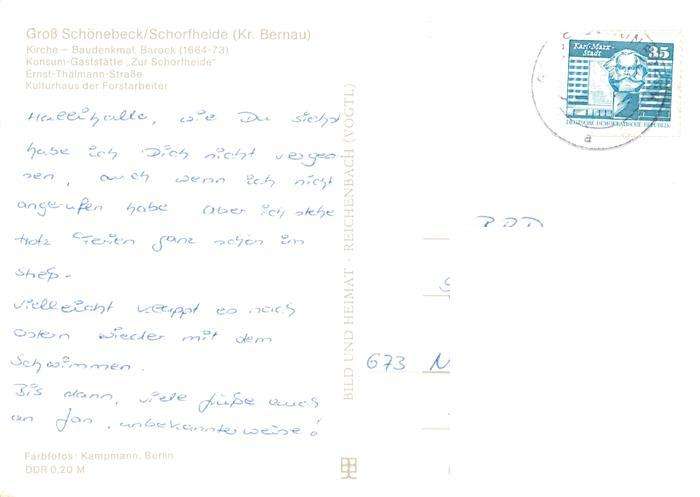 Groß Schönebeck/Schorfheide (Kr. Bernau)
Kirche – Baudenkmal Barock (1664-73)
Konsum-Gaststätte „Zur Schorfheide"
Ernst-Thälmann-Straße
Kulturhaus der Forstarbeiter
Hallihallo, wie Du siehst
habe ich Dich nicht verges-
sen, auch wenn ich nicht
angerufen habe aber ich stehe
trotz Ferien ganz schön im
streß.
vielleicht klappt es nach
ostern wieder mit dem
Schwimmen.
Bis dann, viele Grüße auch
an Jan, unbekannterweise!
Farbfotos: Kampmann, Berlin
DDR 0,20 M
BILD UND HEIMAT · REICHENBACH (VOGTL)
Karl-Marx-
Stadt
35
DEUTSCHE DEMOKRATISCHE REPUBLIK
a
673